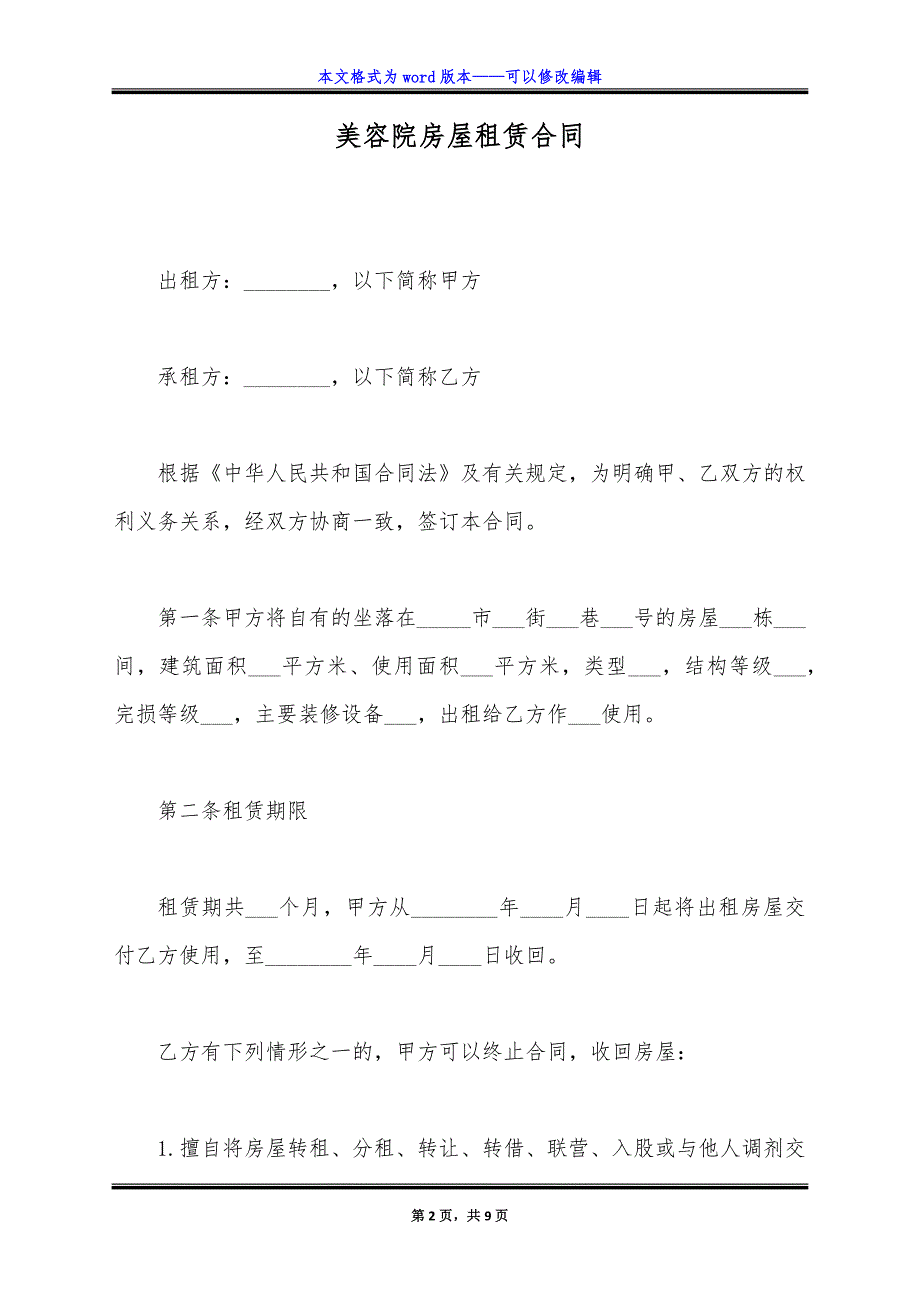 本文格式为 word 版本——可以修改编辑
美容院房屋租赁合同
出租方：________，以下简称甲方
承租方：________，以下简称乙方
根据《中华人民共和国合同法》及有关规定，为明确甲、乙双方的权
利义务关系，经双方协商一致，签订本合同。
第一条甲方将自有的坐落在_____市___街___巷___号的房屋___栋___
间，建筑面积___平方米、使用面积___平方米，类型___，结构等级___，
完损等级___，主要装修设备___，出租给乙方作___使用。
第二条租赁期限
租赁期共___个月，甲方从________年____月____日起将出租房屋交
付乙方使用，至________年____月____日收回。
乙方有下列情形之一的，甲方可以终止合同，收回房屋：
1.擅自将房屋转租、分租、转让、转借、联营、入股或与他人调剂交
第 2 页，共 9 页